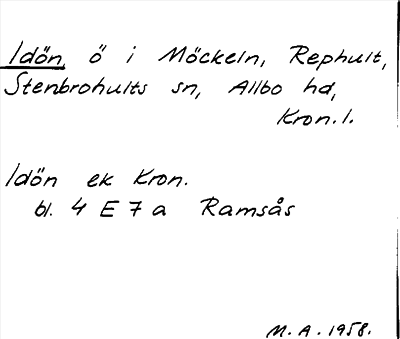 Idön, ö i Möckeln, Rephult,
Stenbrohults sn, Allbo hd,
Kron.l.
Idön ek Kron.
bl. 4 E 7 a Ramsås
M.A. 1958.